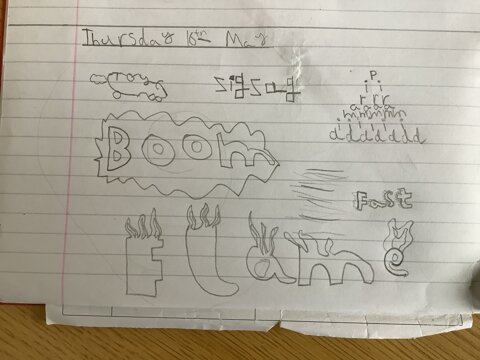 Thursday 16th May
Toy
zigzag
P
i i
r r r
a a a a
m m m m m
i i i i i i
d d d d d d d
Boom
Fast
Flame